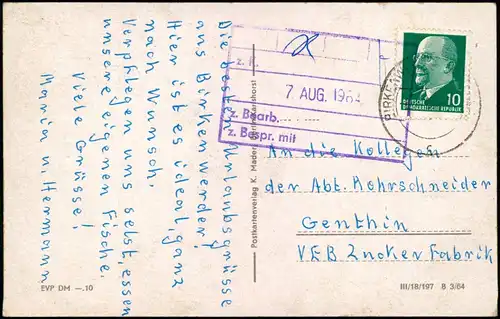 Die besten Urlaubsgrüsse
aus Birkenwerder!
Hier ist es ideal, ganz
nach Wunsch.
Verpflegen uns selbst, essen
unsere eigenen Fische.
Viele Grüsse!
Maria u. Hermann
z. K.
7 AUG. 1964
z. Bearb.
z. Bespr. mit
DEUTSCHE
DEMOKRATISCHE REPUBLIK
10
An die Kollegen
der Abt. Rohrschneider
Genthin
VEB Zuckerfabrik
Postkartenverlag K. Mader
EVP DM —.10
III/18/197 8 3/64